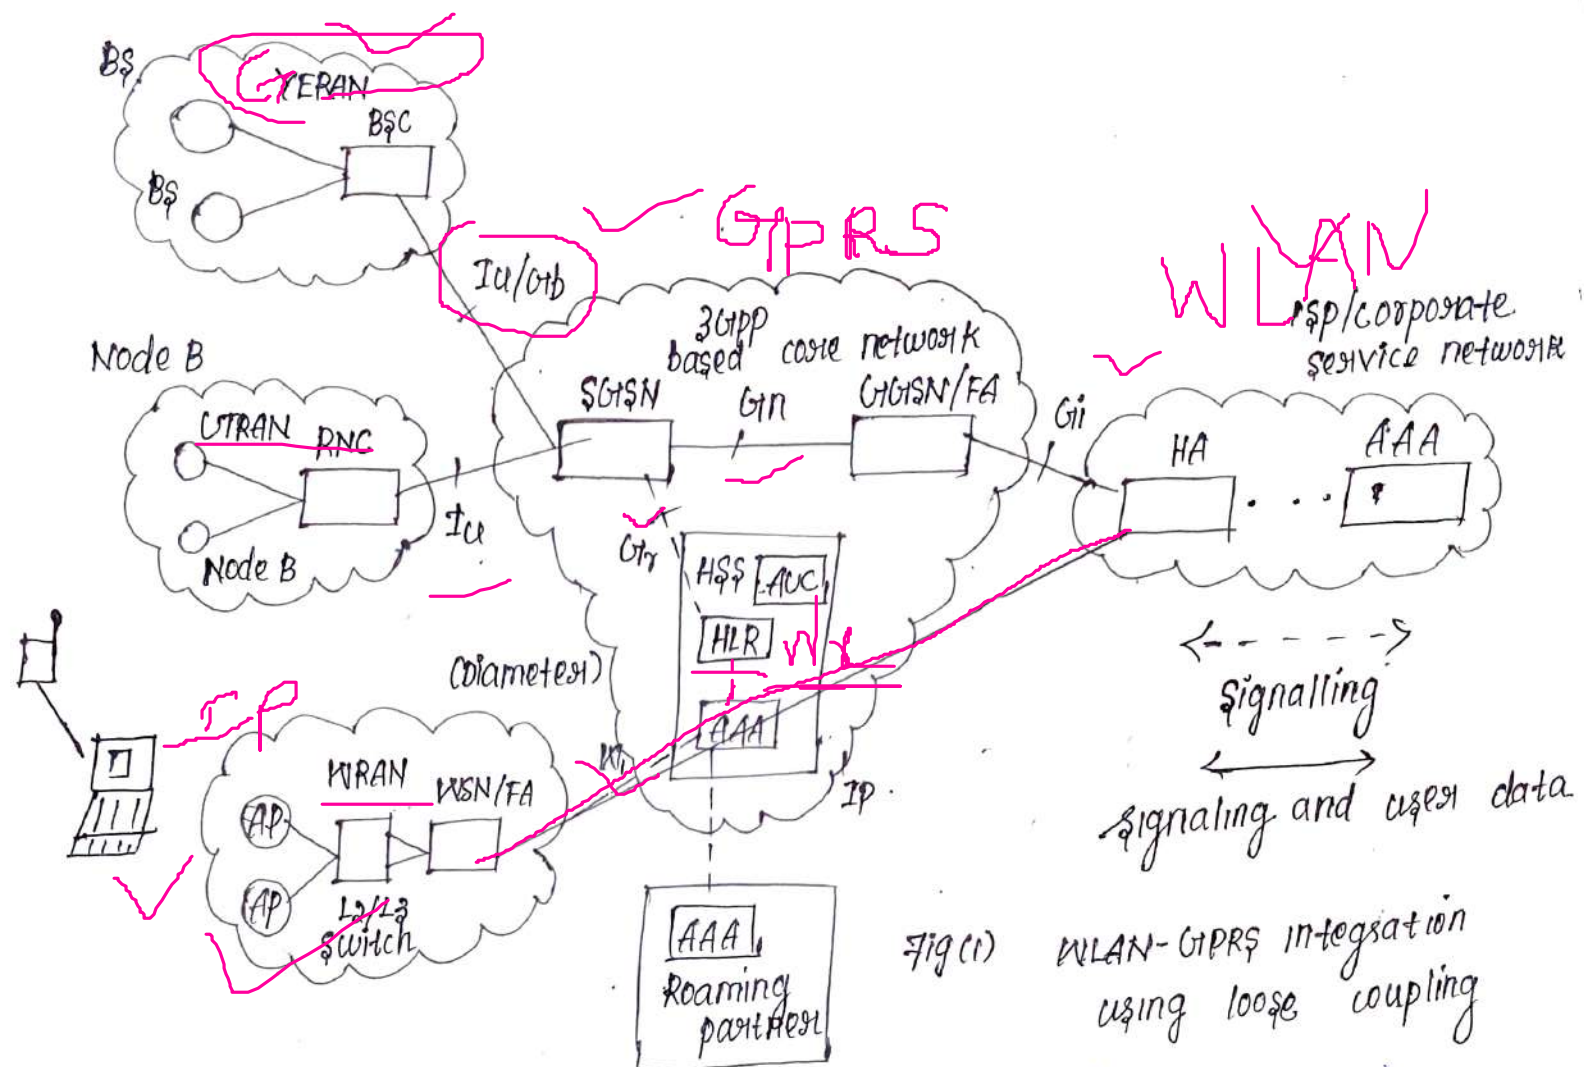 BS
GERAN
BSC
BS
Iu/Gb
GPRS
WLAN
3Gpp
based core network
ISP/corporate
service network
Node B
UTRAN
RNC
Node B
Iu
SGSN
Gn
GGSN/FA
Gi
HA
. . .
AAA
Gr
HSS
AUC
HLR
Wx
AAA
(Diameter)
IP
WRAN
WSN/FA
AP
AP
L2/L3
Switch
IP
AAA
Roaming
partner
signalling
signaling and user data
Fig(1) WLAN-GPRS integration
using loose coupling